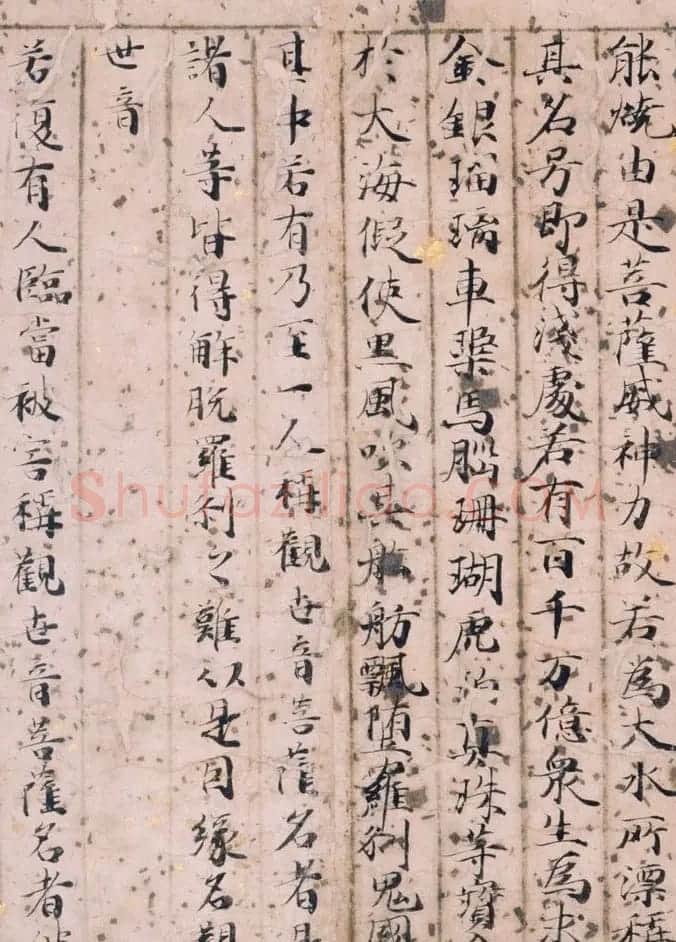 能燒由是菩薩威神力故若為大水所漂稱
其名号即得淺處若有百千万億衆生為求
金銀瑠璃車璖馬腦珊瑚虎珀真珠等寶
於大海假使黒風吹其舩舫飄堕羅刹鬼國
其中若有乃至一人稱觀世音菩薩名者是
諸人等皆得解脱羅刹之難以是因緣名觀
世音
若復有人臨當被害稱觀世音菩薩名者彼
Shufaziliao.COM